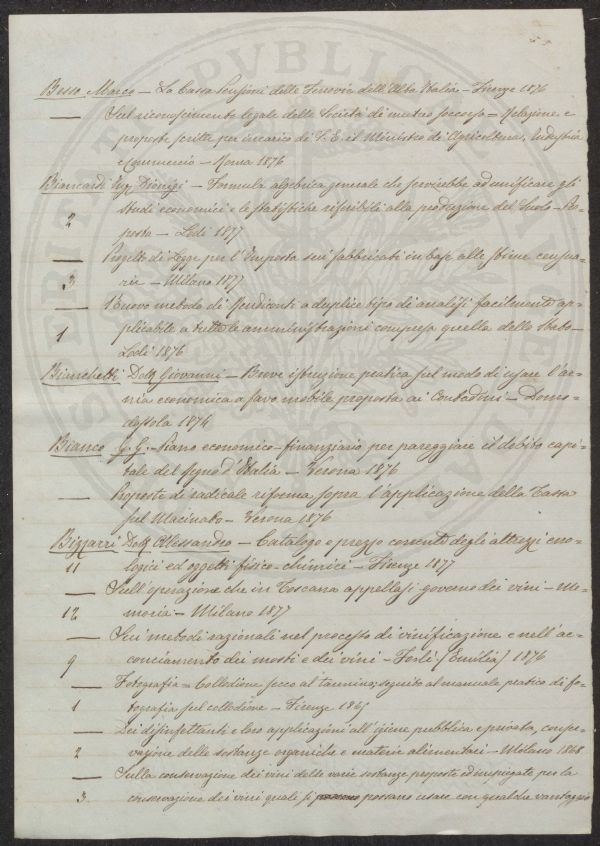 Besso Marco – La Cassa Pensioni delle Ferrovie dell'Alta Italia – Firenze 1876
— Sul riconoscimento legale delle Società di mutuo soccorso – Relazione e
proposte scritte per incarico di S. E. il Ministro di Agricoltura, Industria
e Commercio – Roma 1876
Biancardi Ing. Dionigi – Formula algebrica generale che servirebbe ad unificare gli
2 studi economici e le statistiche riferibili alla produzione del Suolo – Re-
posta – Lodi 1877
— Progetto di Legge per l'Imposta sui fabbricati in base alle stime censua-
3 rie – Milano 1877
— Nuovo metodo di Rendiconti a duplice tipo di analisi facilmente ap-
1 plicabile a tutte le amministrazioni compresa quella dello Stato –
Lodi 1876
Bianchetti Dott. Giovanni – Breve istruzione pratica sul modo di usare l'ar-
nia economica a favo mobile proposta ai Contadini – Domo-
dossola 1874
Bianco G. G. – Piano economico-finanziario per pareggiare il debito capi-
tale del Regno d'Italia – Verona 1876
— Proposte di radicale riforma sopra l'applicazione della Tassa
sul Macinato – Verona 1876
Bizzarri Dott. Alessandro – Catalogo e prezzo correnti degli attrezzi eno-
11 logici ed oggetti fisico-chimici – Firenze 1877
— Sull'operazione che in Toscana appellasi governo dei vini – Me-
12 moria – Milano 1877
— Sui metodi razionali nel processo di vinificazione e nell'ac-
9 conciamento dei mosti e dei vini – Forlì (Emilia) 1876
— Fotografia = Collodione secco al tannino; seguito al manuale pratico di fo-
1 tografia sul collodione – Firenze 1865
— Dei disinfettanti e loro applicazioni all'igiene pubblica e privata, conser-
2 vazione delle sostanze organiche e materie alimentari – Milano 1868
— Sulla conservazione dei vini delle varie sostanze proposte ed impiegate per la
3 conservazione dei vini quale si possano usare con qualche vantaggio